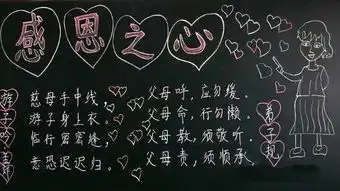 感恩之心
游子吟
孟郊
慈母手中线，
游子身上衣。
临行密密缝，
意恐迟迟归。
父母呼，应勿缓。
父母命，行勿懒。
父母教，须敬听。
父母责，须顺承。
弟子规